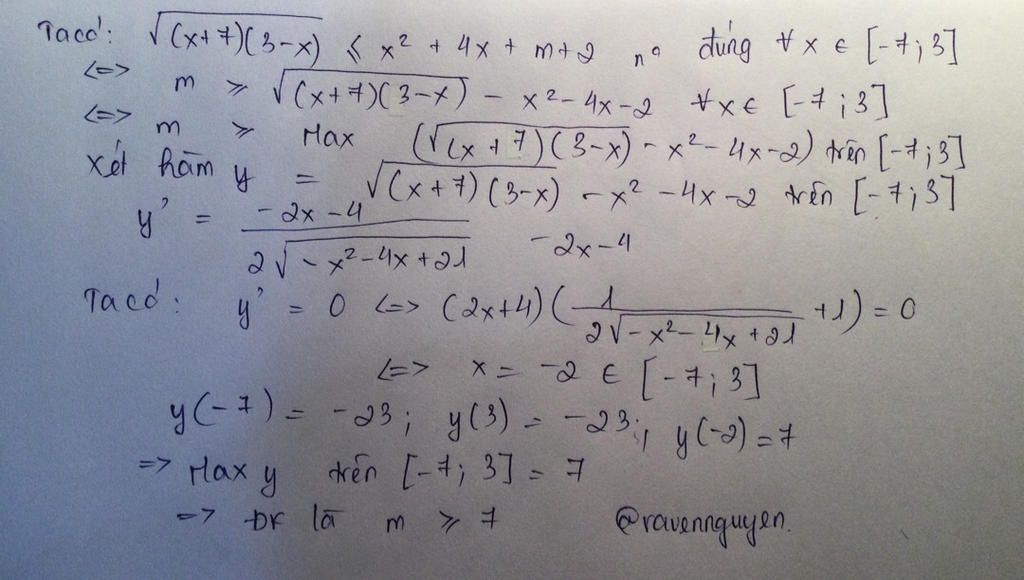 Ta có: √((x+7)(3-x)) ≤ x² + 4x + m+2 nº đúng ∀x ∈ [-7; 3]
<=> m ≥ √((x+7)(3-x)) - x² - 4x - 2 ∀x ∈ [-7; 3]
<=> m ≥ Max (√((x+7)(3-x)) - x² - 4x - 2) trên [-7; 3]
Xét hàm y = √((x+7)(3-x)) - x² - 4x - 2 trên [-7; 3]
y' = (-2x-4)/(2√(-x²-4x+21)) -2x-4
Ta có: y' = 0 <=> (2x+4)(1/(2√(-x²-4x+21)) +1) = 0
<=> x = -2 ∈ [-7; 3]
y(-7) = -23; y(3) = -23; y(-2) = 7
=> Max y trên [-7; 3] = 7
=> ĐK là m ≥ 7 @ravennguyen.